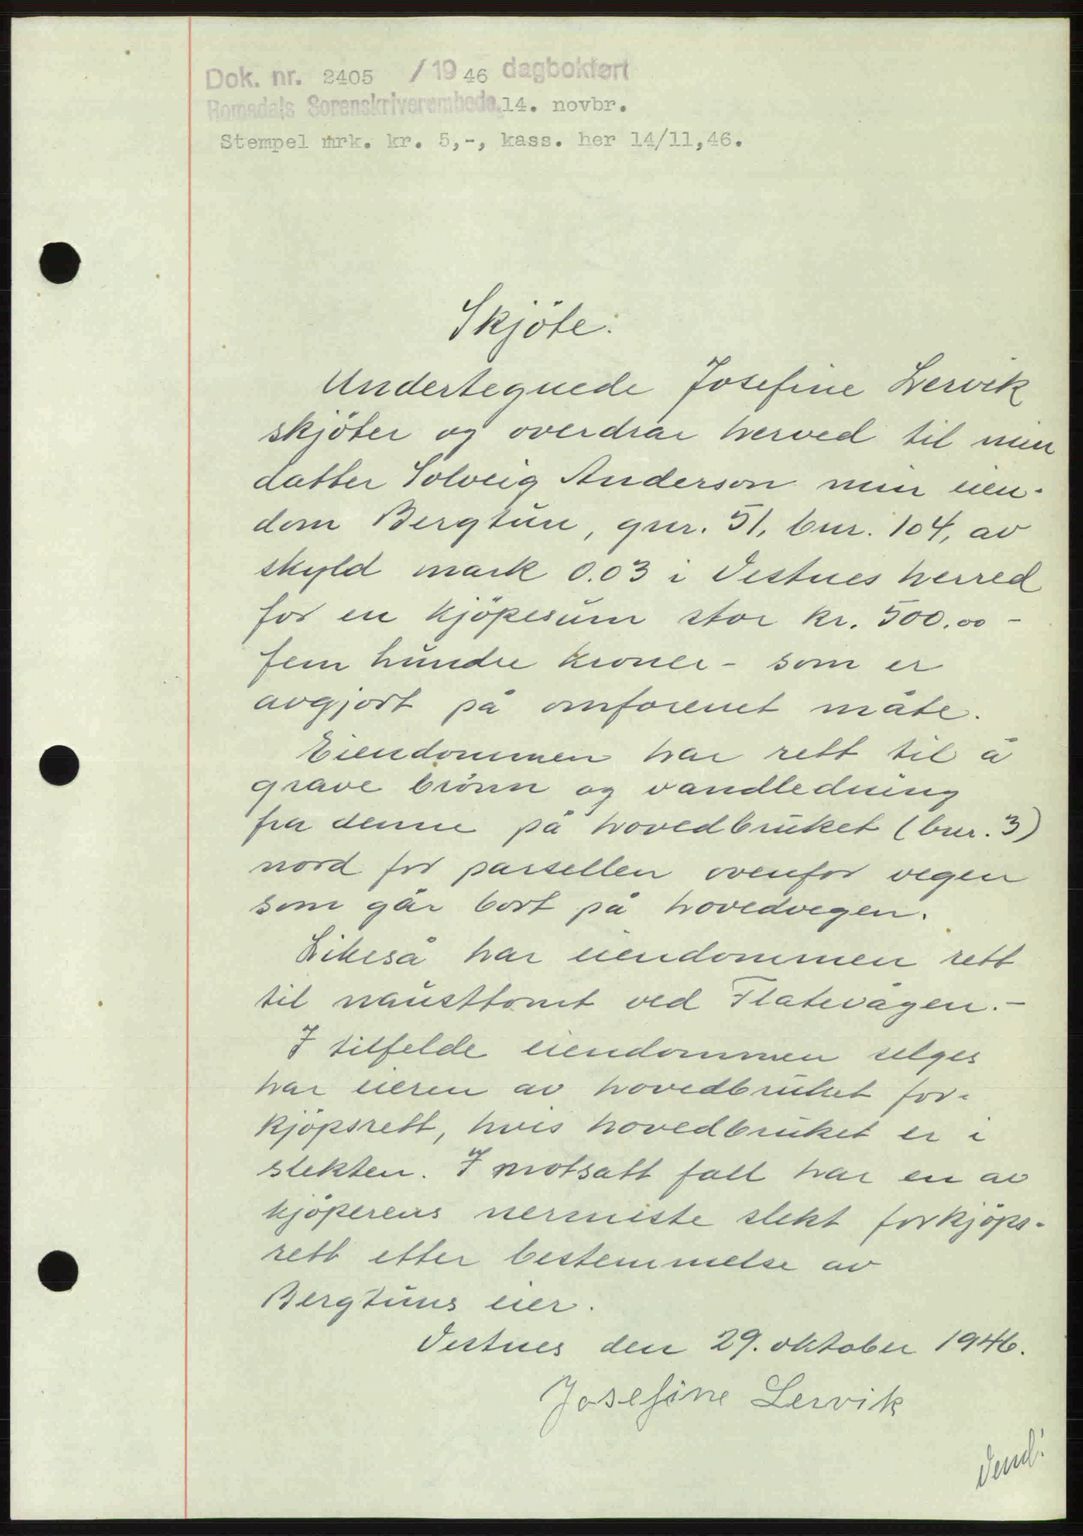 Dok. nr. 2405 / 1946 dagbokført
Romsdals Sorenskriverembede, 14. novbr.
Stempel mrk. kr. 5,-, kass. her 14/11,46.
Skjöte.
Undertegnede Josefine Lervik
skjöter og overdrar herved til min
datter Solveig Anderson min eien-
dom Bergtun, gnr. 51, bnr. 104, av
skyld mark 0.03 i Vestnes herred
for en kjöpesum stor kr. 500.00 -
fem hundre kroner - som er
avgjort på omforenet måte.
Eiendommen har rett til å
grave brönn og vandledning
fra denne på hovedbruket (bnr. 3)
nord for parsellen ovenfor vegen
som går bort på hovedvegen.
Likeså har eiendommen rett
til nausttomt ved Flatevågen. -
I tilfelde eiendommen selges
har eieren av hovedbruket for-
kjöpsrett, hvis hovedbruket er i
slekten. I motsatt fall har en av
kjöperens nermeste slekt forkjöps-
rett etter bestemmelse av
Bergtuns eier.
Vestnes den 29. oktober 1946.
Josefine Lervik
Vend!